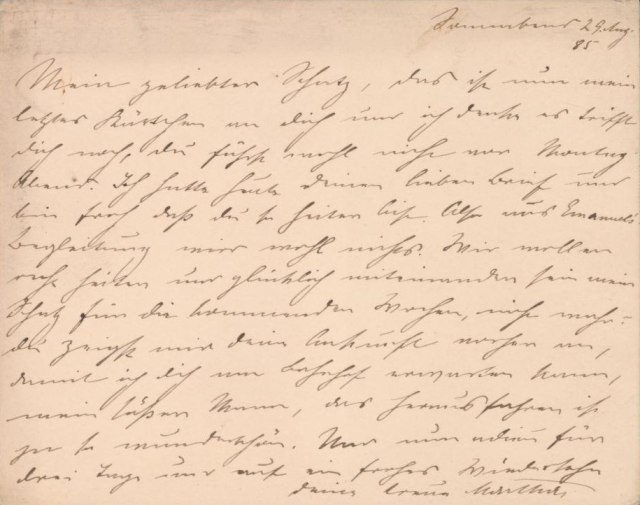 Sonnabend 29. Aug.
85
Mein geliebter Schatz, das ist nun mein
letztes Kärtchen an dich und ich denke es trifft
dich noch, du fährst wohl nicht vor Montag
Abend. Ich hatte heute deinen lieben Brief und
bin froh daß du so heiter bist. Also aus Emanuels
Begleitung wird wohl nichts. Wir wollen
recht heiter und glücklich miteinander sein mein
Schatz für die kommenden Wochen, nicht wahr?
du zeigst mir deine Ankunft vorher an,
damit ich dich am Bahnhof erwarten kann,
mein süßer Mann, das herausfahren ist
ja so wunderschön. Und nun adieu für
drei Tage und auf ein frohes Wiedersehn
deine treue Martha